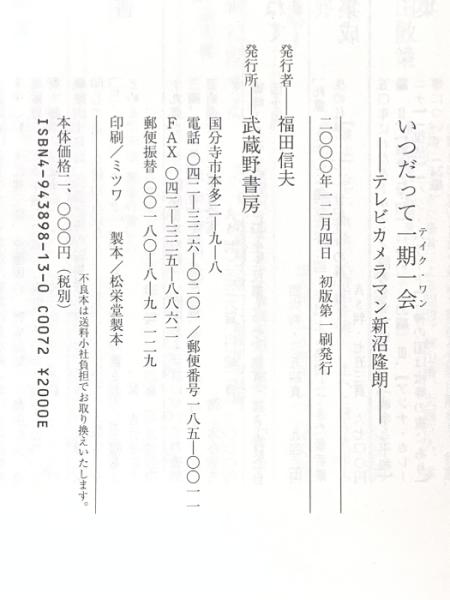 いつだって一期一会
テイク・ワン
――テレビカメラマン新沼隆朗――
二〇〇〇年一二月四日 初版第一刷発行
発行者――福田信夫
発行所――武蔵野書房
国分寺市本多二―九―八
電話 〇四二―三二六―〇二〇一／郵便番号一八五―〇〇一一
FAX 〇四二―三二五―八八六二
郵便振替 〇〇一八〇―八―九一一二九
印刷／ミツワ 製本／松栄堂製本
不良本は送料小社負担でお取り換えいたします。
本体価格二、〇〇〇円（税別）
ISBN4-943898-13-0 C0072 ¥2000E